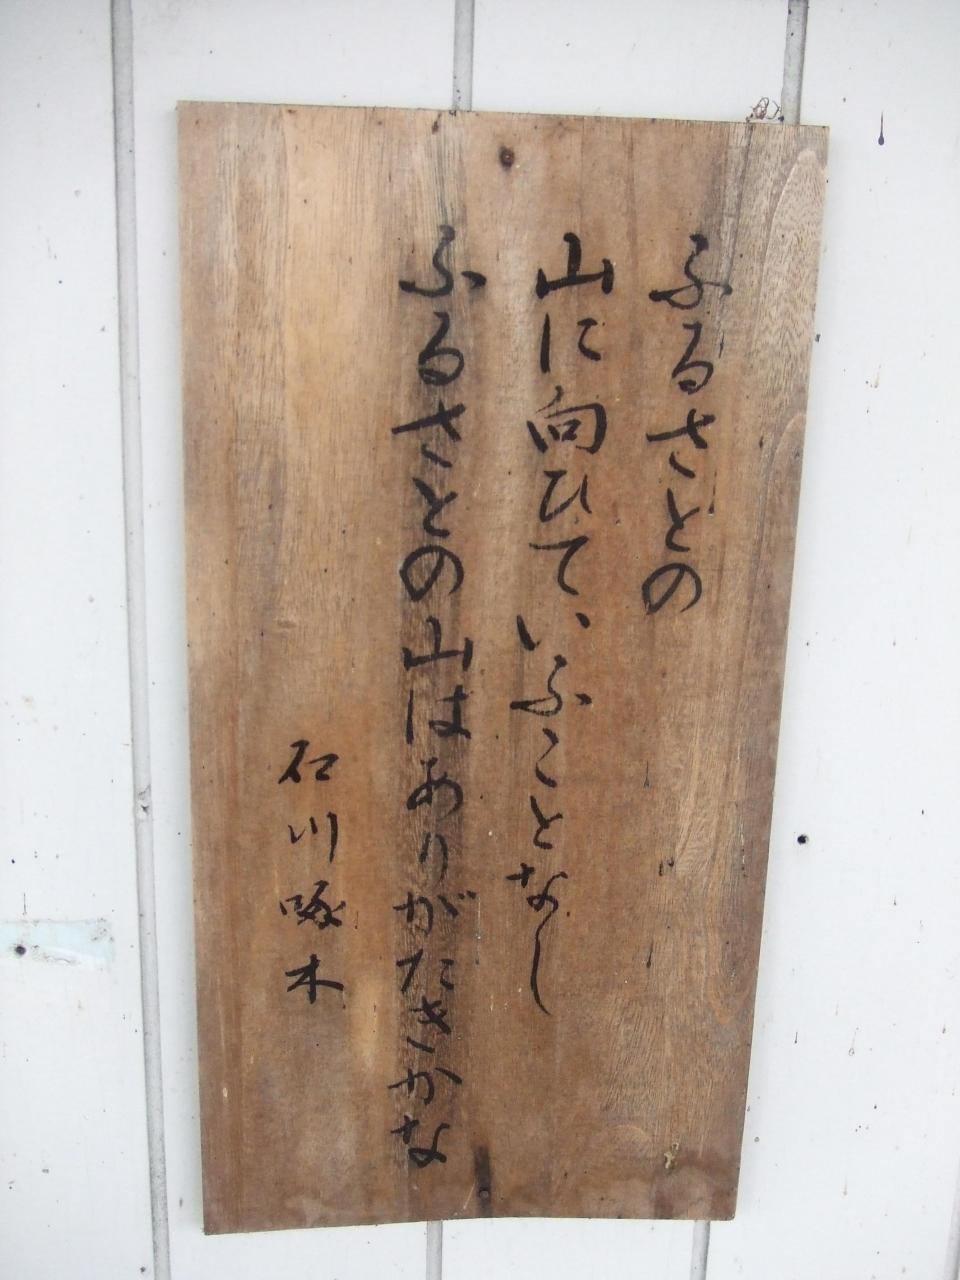 ふるさとの
山に向ひていふことなし
ふるさとの山はありがたきかな
石川啄木